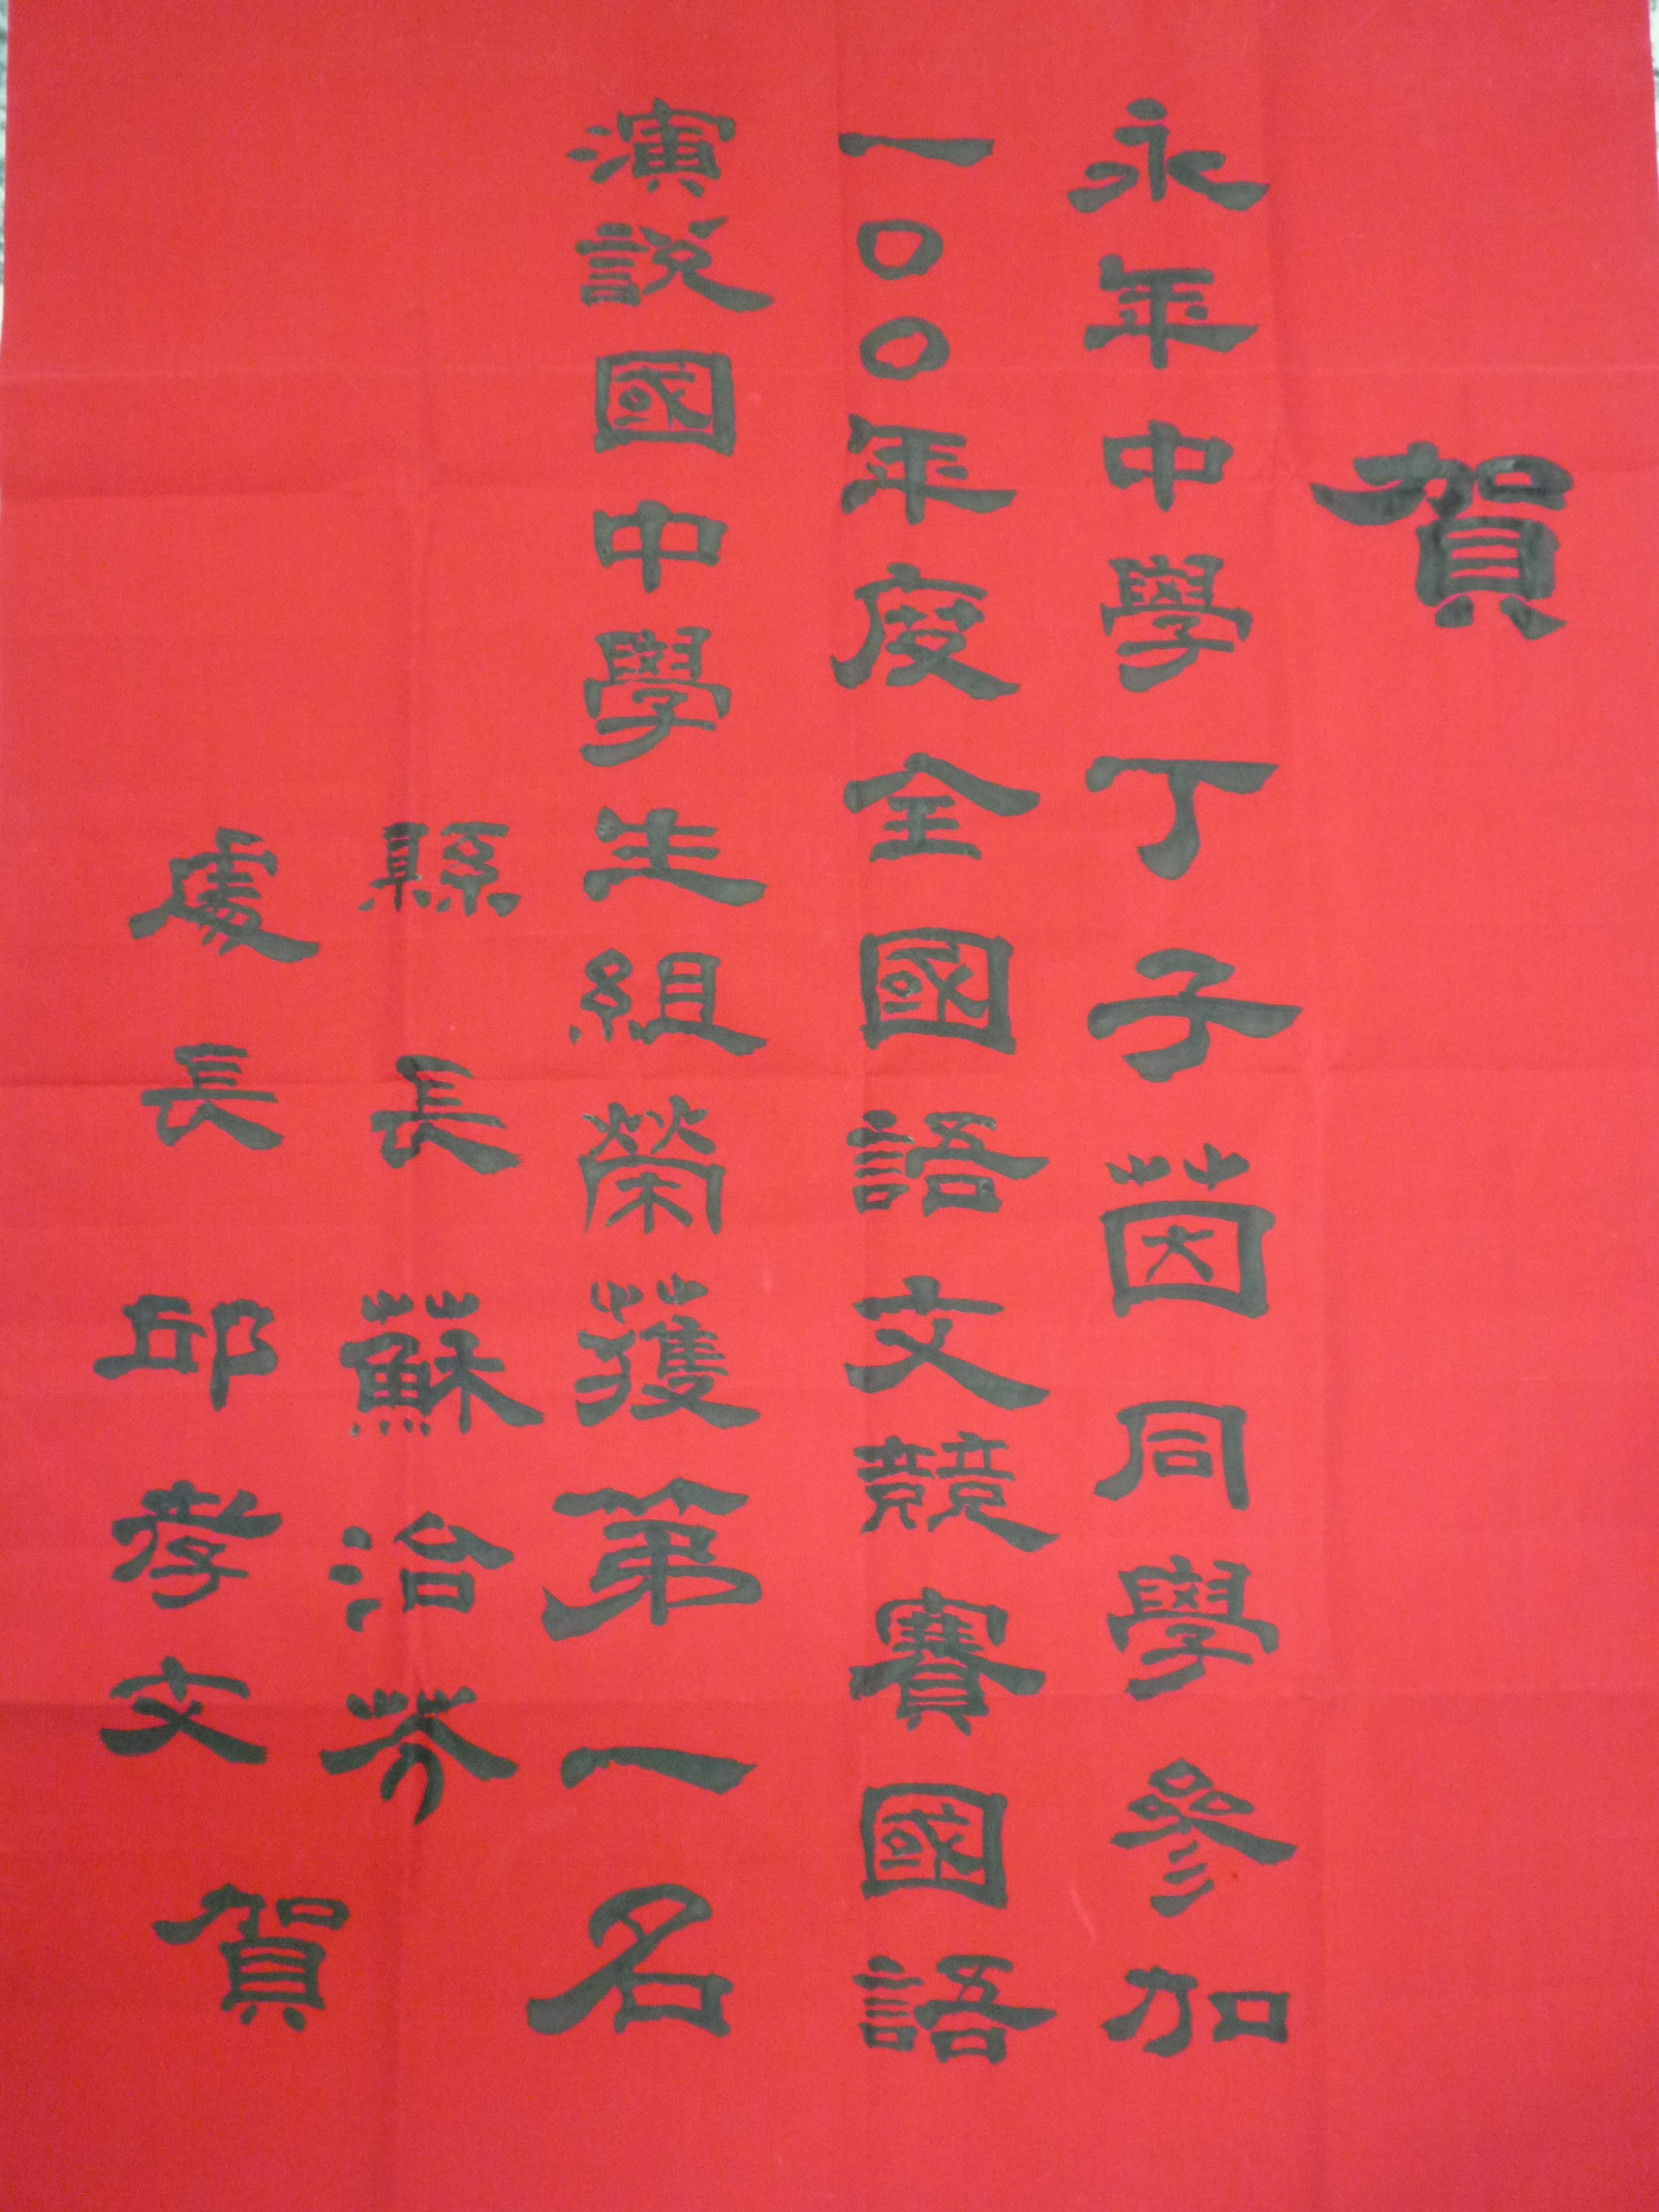 賀
永年中學丁子茵同學參加
一○○年度全國語文競賽國語
演說國中學生組榮獲第一名
縣長蘇治芬
處長邱孝文
賀